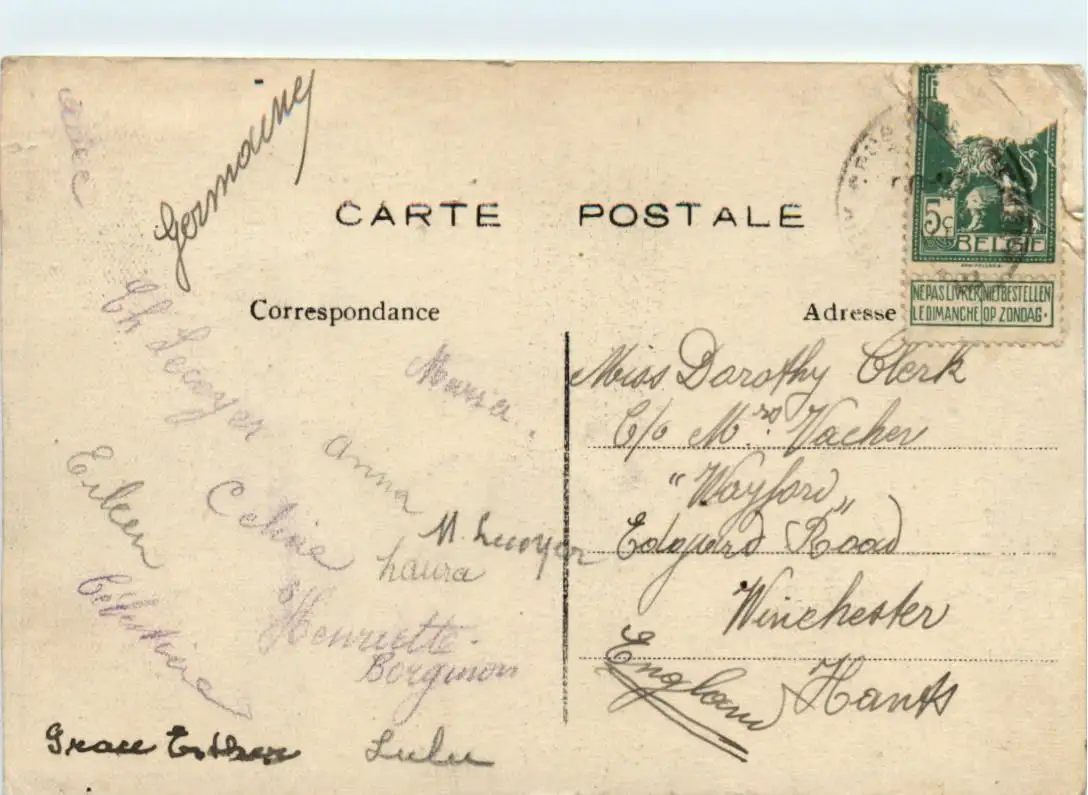 Germaine
CARTE POSTALE
5c
BELGIE
NE PAS LIVRER NIET BESTELLEN
LE DIMANCHE OP ZONDAG.
Correspondance
Adresse
Ch Lecoyer
Maria.
Anna
Eileen
Celine
M. Lecoyer
Laura
Henriette
Borginon
Célestina
Grace Esther
Lulu
Miss Dorothy Clerk
C/o Mrs. Vacher
"Wayford"
Edgard Road
Winchester
England Hants